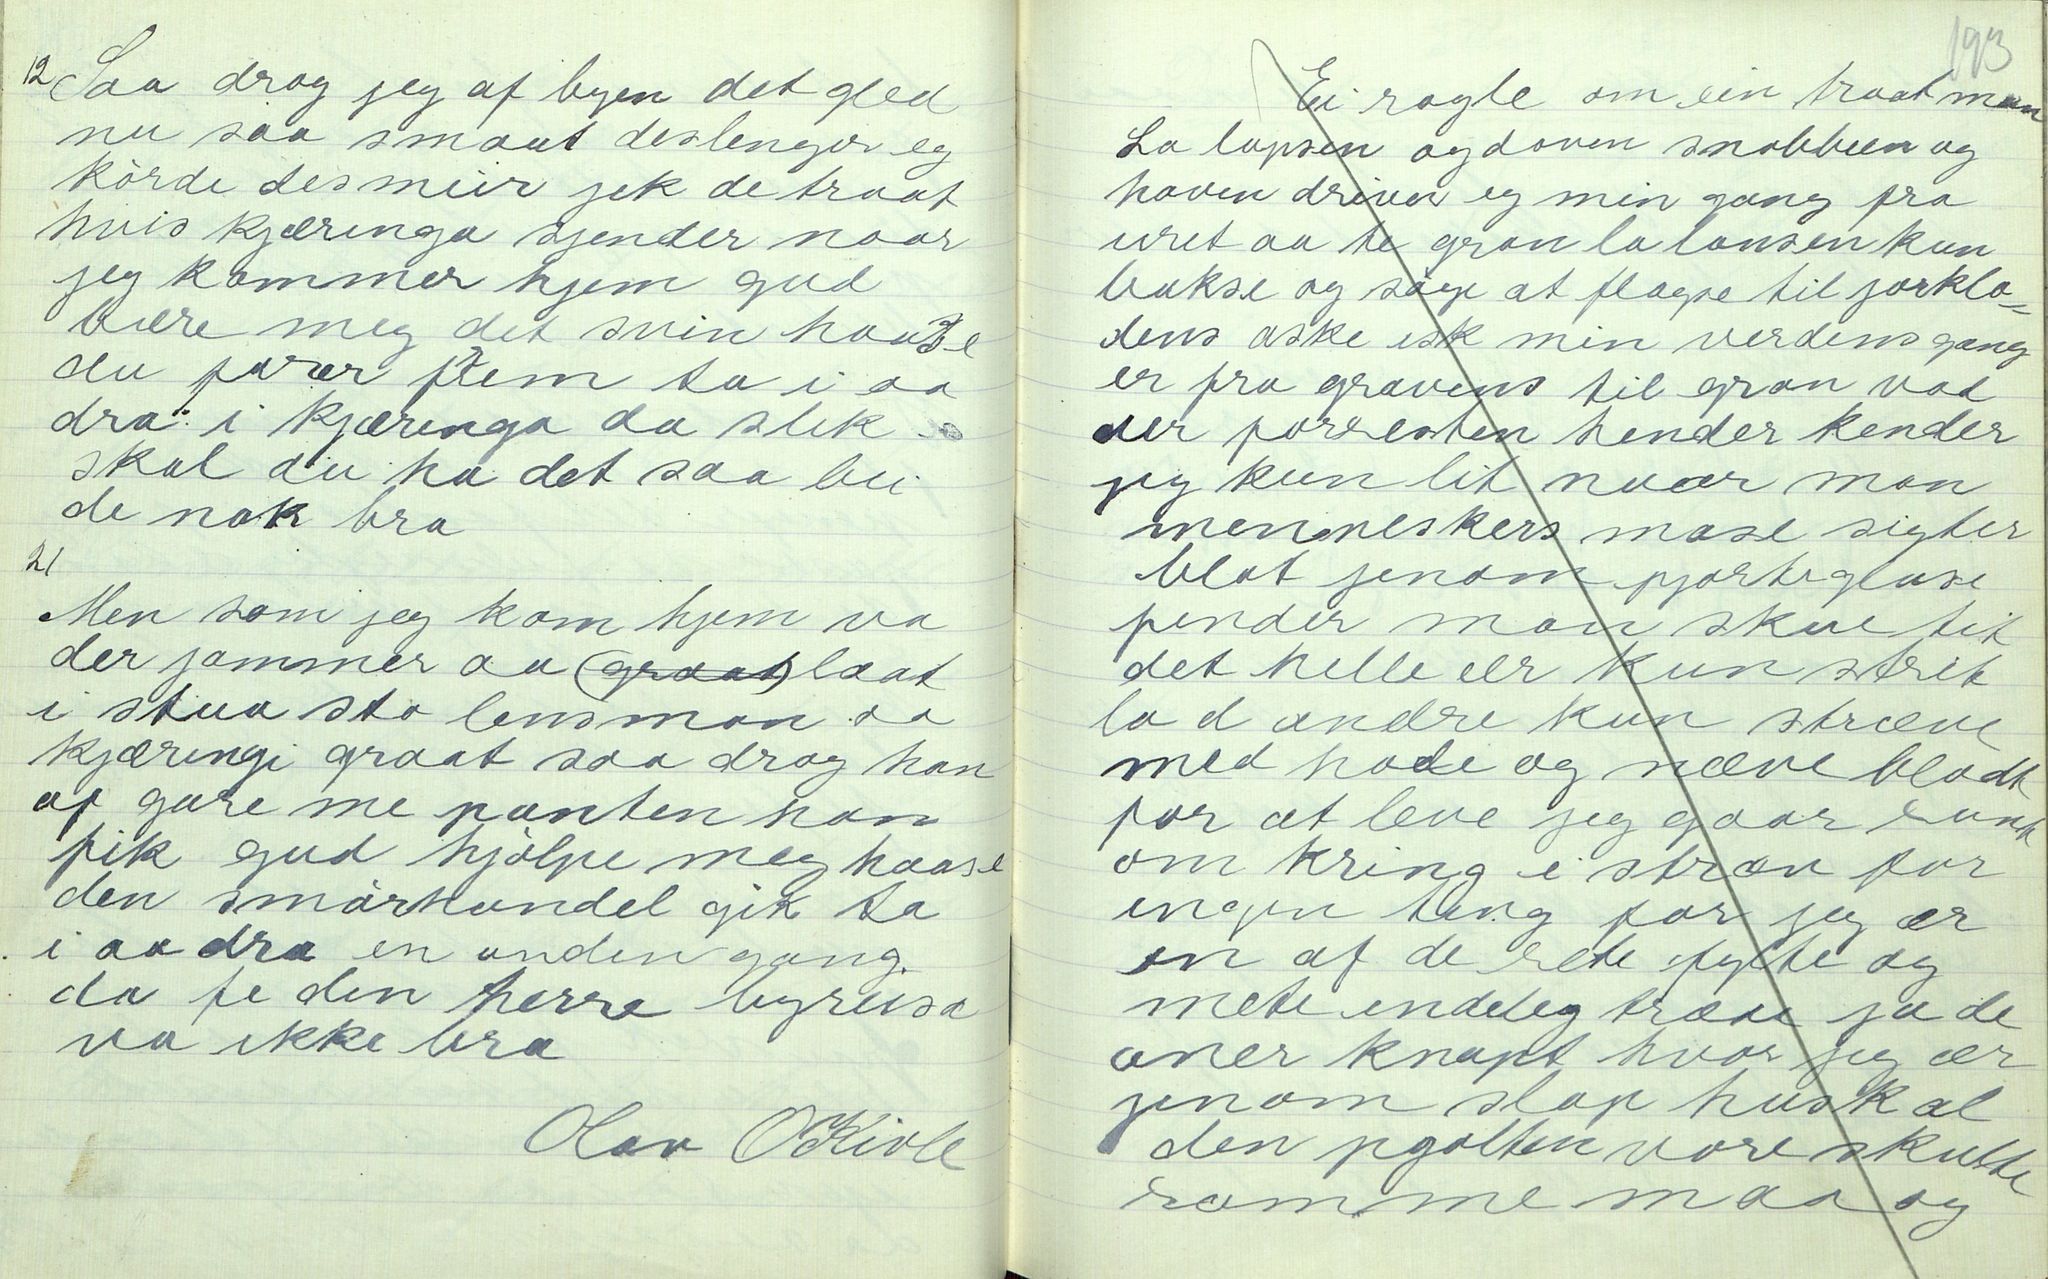 12 Saa drog jeg af byen det gled
nu saa smaat deslenger eg
körde des meir jek de traat
hvis kjæringa sjender naar
jeg kommer hjem gud
bære meg det svin haase
du farer frem ta i aa
dra i kjæringa da slik
skal du ha det saa bli
de nok bra
21
Men som jeg kom hjem va
der jammer aa (graat) laat
i stua sto lensman aa
kjæringi graat saa drog han
af gare me panten han
fik gud hjölpe meg haase
den smörhandel gik ta
i aa dra en anden gang.
da fe den herre byreisa
va ikke bra
Olav O Kivle
193
Ei rogle om ein traat man
La lapsen og doven snobben og
hoven driver eg min gang fra
uret aa te gran la lansen kun
bakse og söge at flagse til jorklo=
dens aske esk min verdens gang
er fra gravens til gran vad
der forresten hender kender
jeg kun lit nvær man
menneskers mase sigter
blot jenom fjorteglase
fender man skue tit
det helle er kun strit
lad andre kun stræve
med hode og næve blodt
for at leve jeg gaar rundt
om kring i stræv for
ingen ting for jeg ær
en af de rete fylte og
mete endeleg træte ja de
aner knapt hvor jeg ær
jenom slap husk al
den golten vore skutte
romme maa og